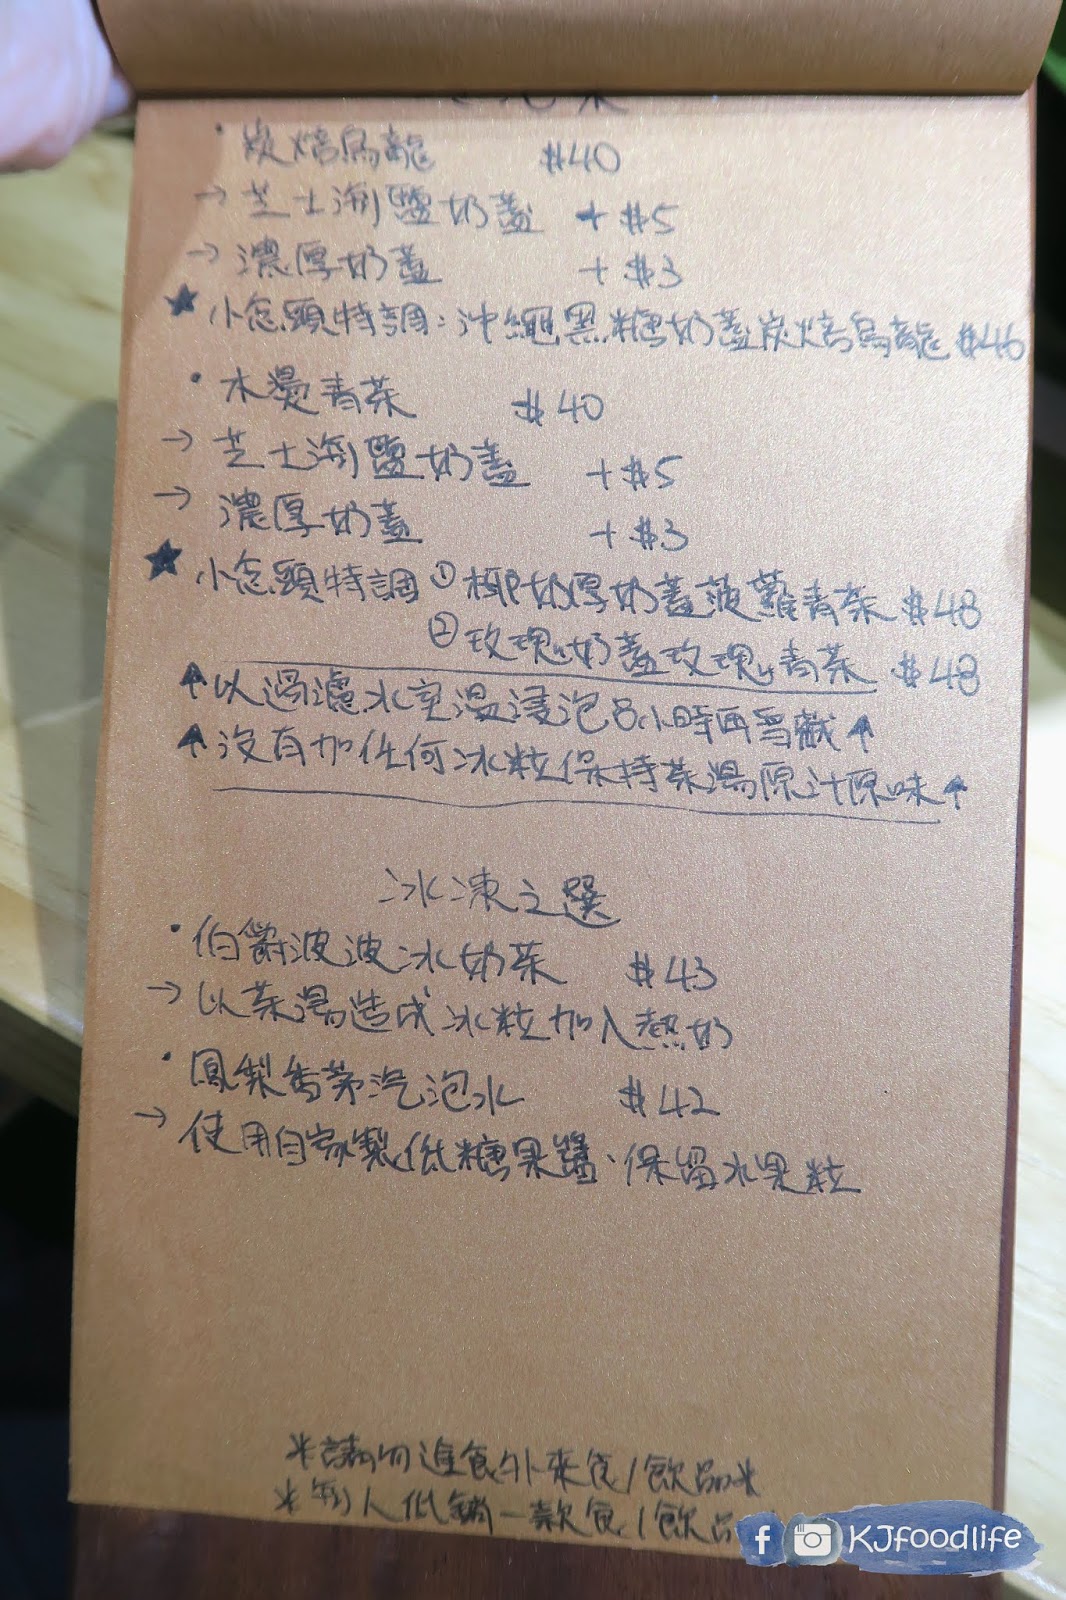 ・炭焙烏龍 $40
→芝士海鹽奶蓋 +$5
→濃厚奶蓋 +$3
★小念頭特調：沖繩黑糖奶蓋炭焙烏龍 $46
・木燙青茶 $40
→芝士海鹽奶蓋 +$5
→濃厚奶蓋 +$3
★小念頭特調①椰奶厚奶蓋菠蘿青茶 $48
②玫瑰奶蓋玫瑰青茶 $48
↑以過濾水室溫浸泡8小時再雪藏↑
↑沒有加任何冰粒保持茶湯原汁原味↑
冰凍之選
・伯爵波波冰奶茶 $43
→以茶湯造成冰粒加入熱奶
・鳳梨香茅汽泡水 $42
→使用自家製低糖果醬、保留水果粒
*請勿進食外來食/飲品*
*每人低銷一款食/飲品
KJfoodlife